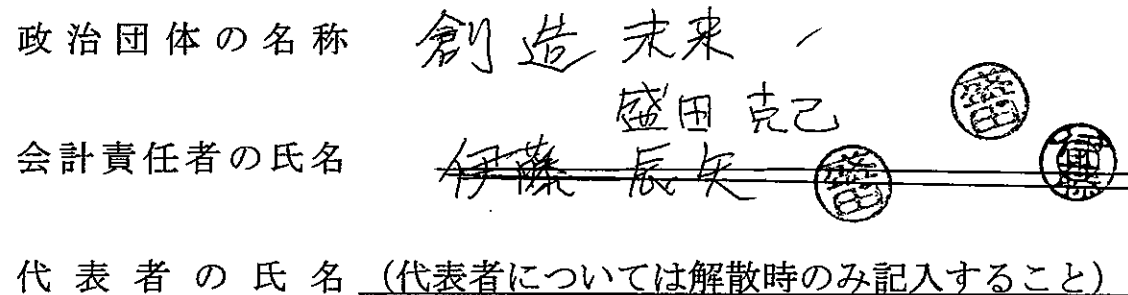 政治団体の名称 創造未来
盛田克己
会計責任者の氏名 伊藤辰矢
盛田
盛田
伊藤
代表者の氏名(代表者については解散時のみ記入すること)